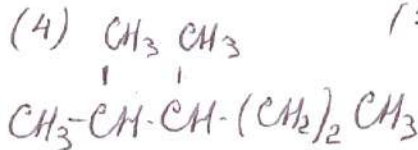 (4) CH3 CH3 (
CH3-CH-CH-(CH2)2 CH3